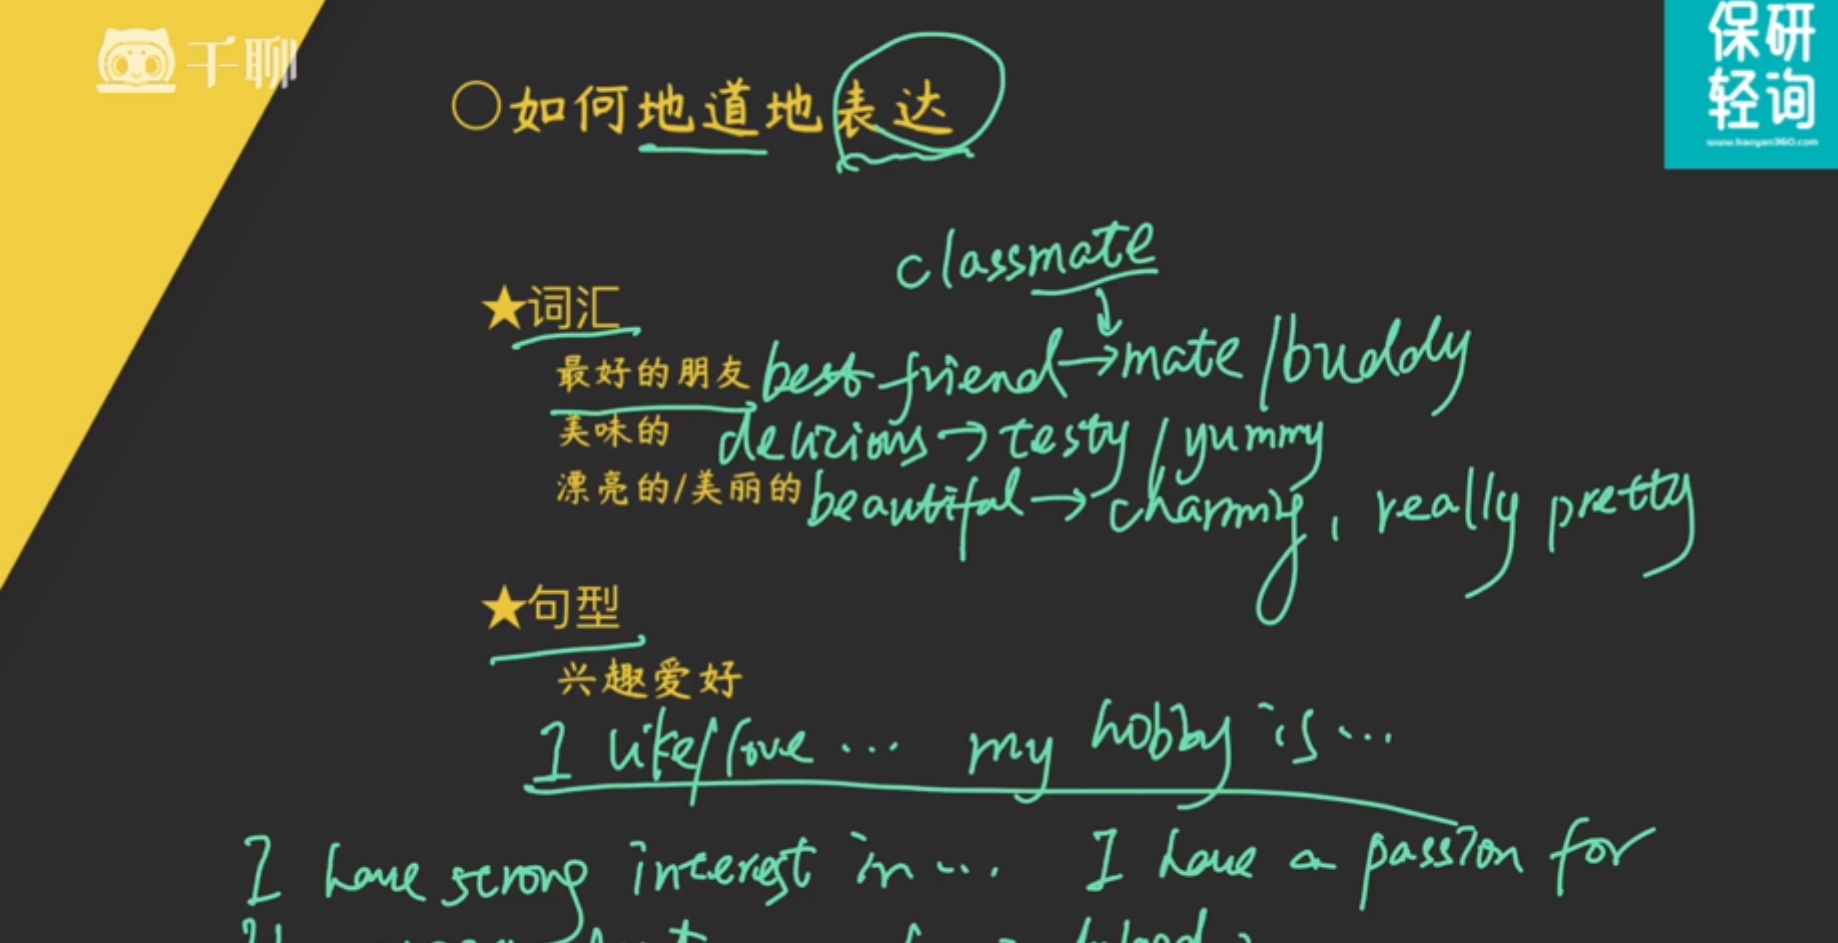 千聊
保研
轻询
www.baoyan360.com
○如何地道地表达
classmate
★词汇
最好的朋友 best friend→mate/buddy
美味的 delicious→testy/yummy
漂亮的/美丽的 beautiful→charming, really pretty
★句型
兴趣爱好
I like/love... my hobby is...
I have strong interest in... I have a passion for